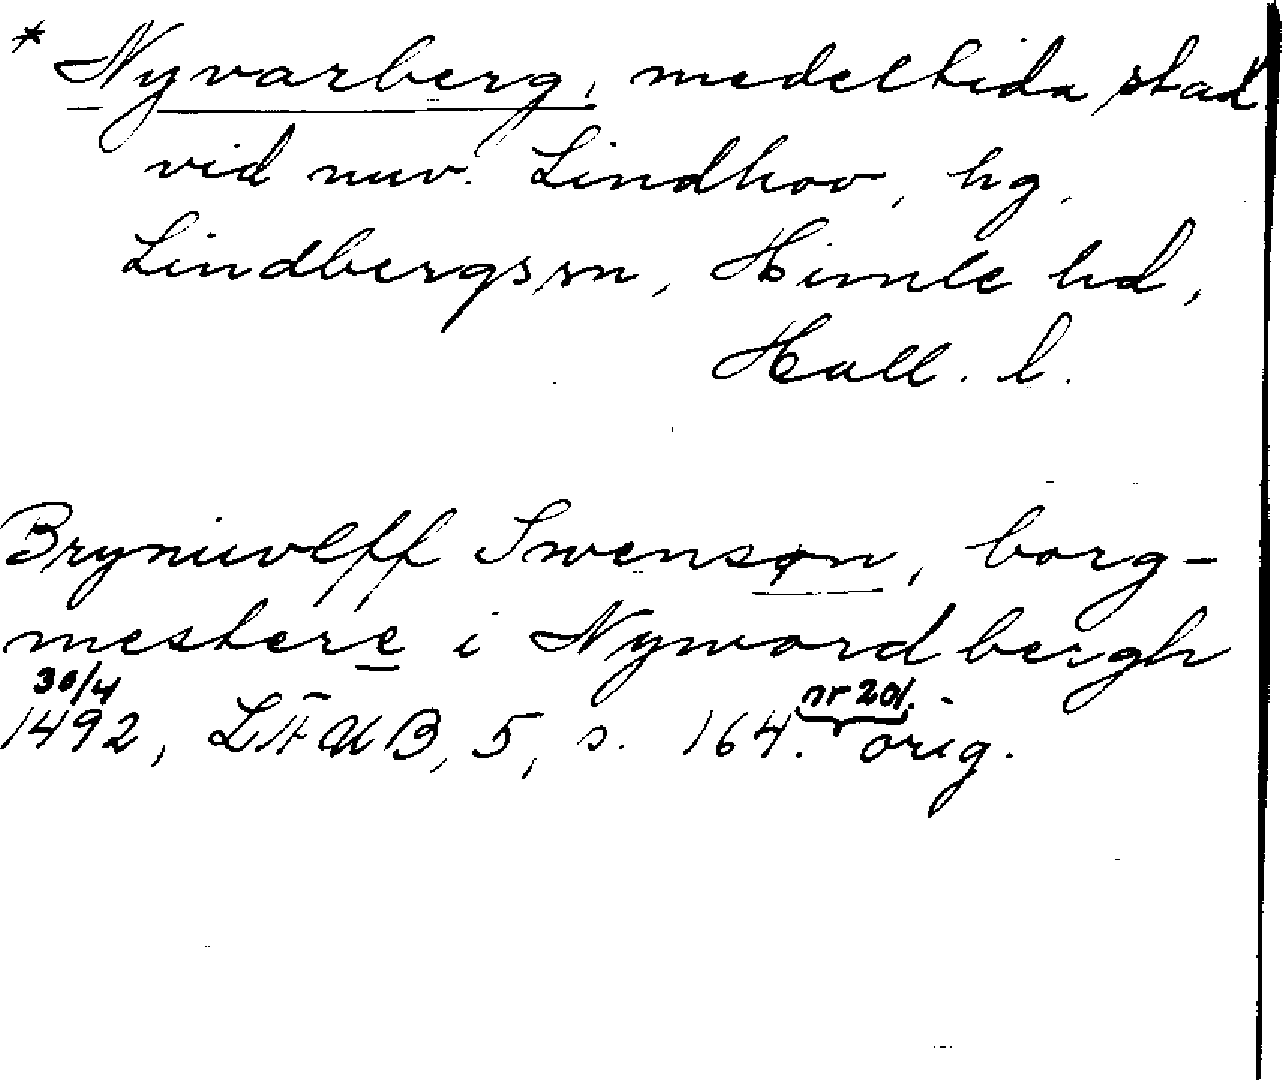 * Nyvarberg, medeltida stad
vid nuv. Lindhov, hg,
Lindbergs sn, Himle hd,
Hall. l.
Bryniuvlff Swensøn, borg-
mestere i Nywardbergh
30/4
1492, LÄUB, 5, s. 164. nr 201. orig.